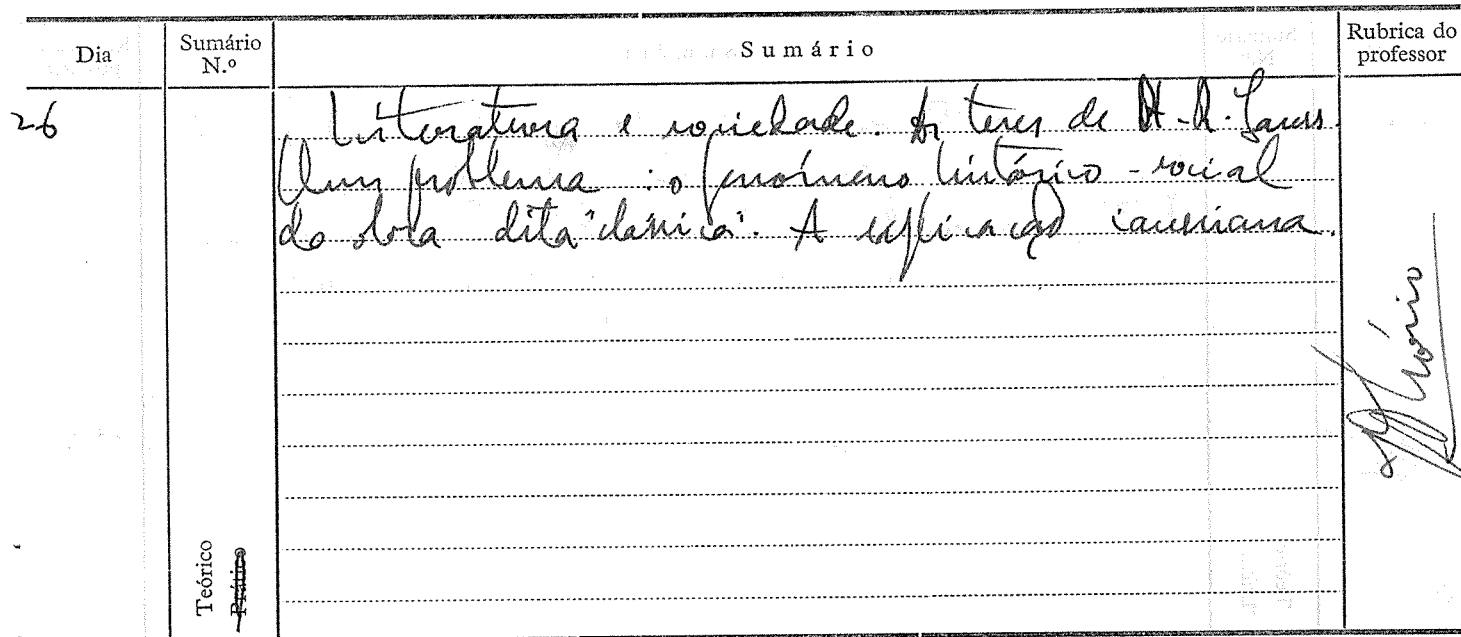 Dia
Sumário N.º
Sumário
Rubrica do professor
26
Literatura e sociedade. As teses de H.-R. Jauss.
Um problema: o fenómeno histórico-social
da obra dita "clássica". A explicação jaussiana.
Teórico
Prático